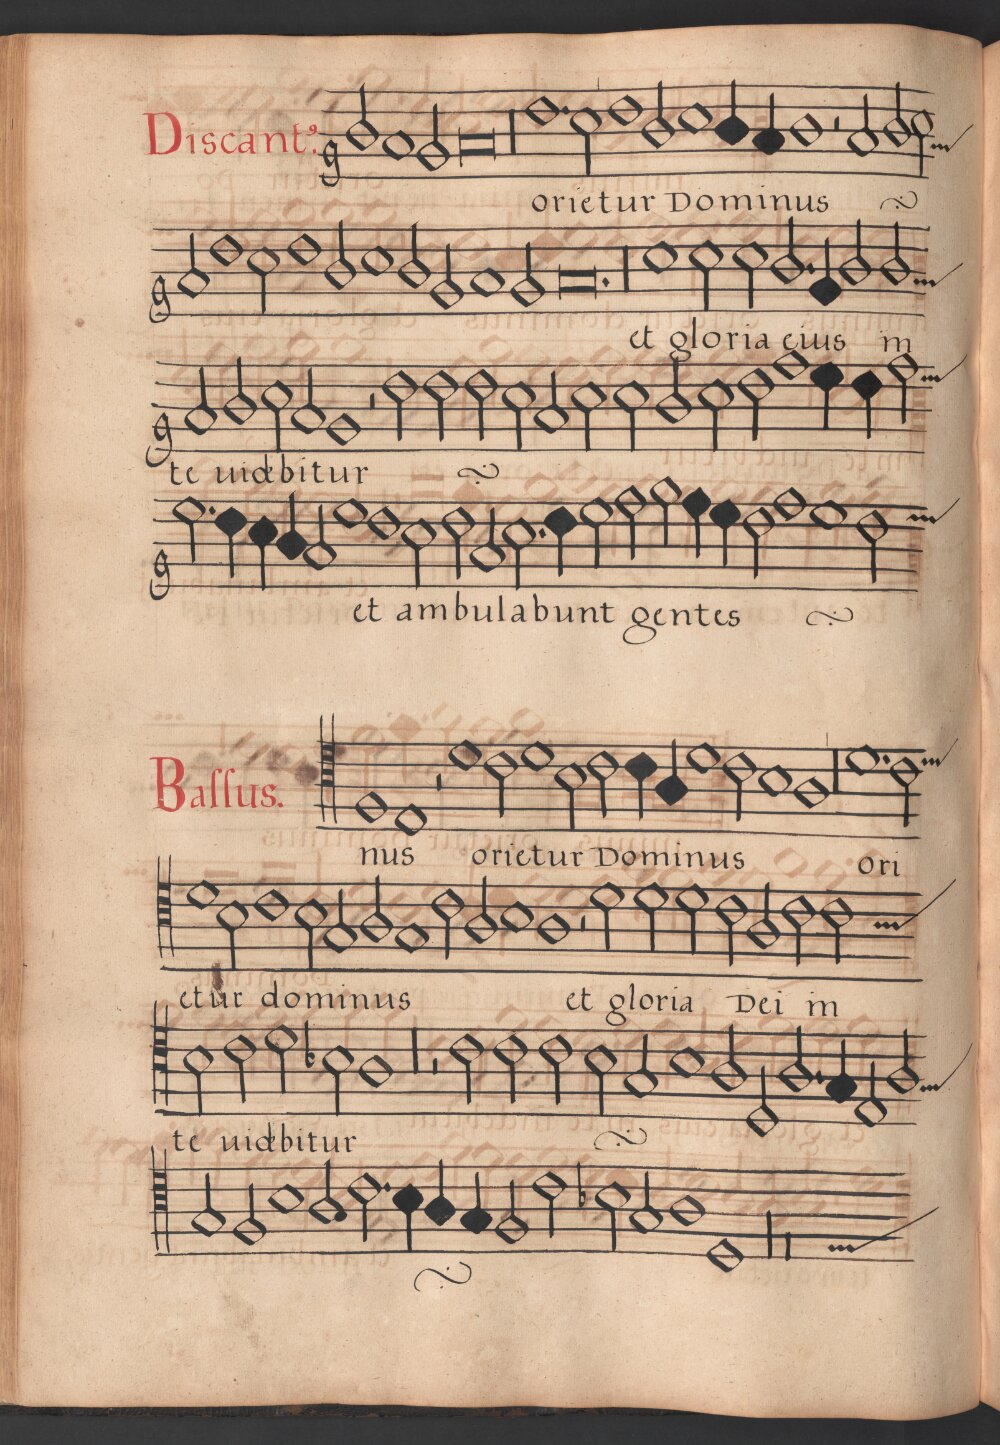 Discantꝰ.
orietur Dominus
et gloria eius in
te uidebitur
et ambulabunt gentes
Baſſus.
nus orietur Dominus ori
etur dominus et gloria Dei in
te uidebitur